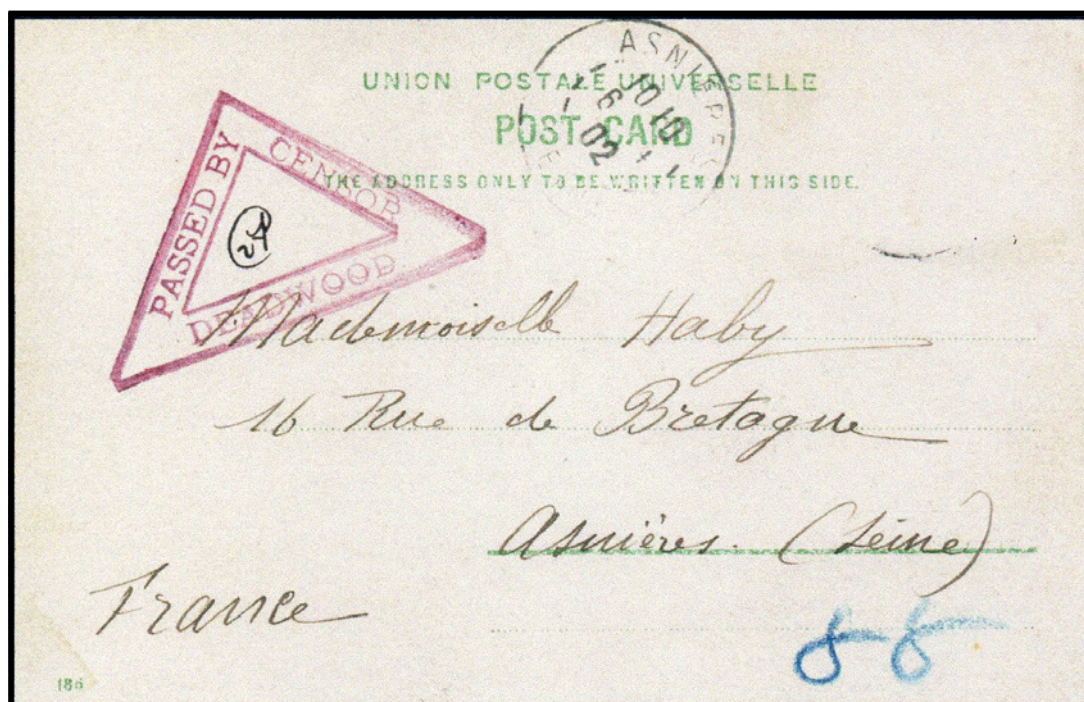 UNION POSTALE UNIVERSELLE
POST CARD
THE ADDRESS ONLY TO BE WRITTEN ON THIS SIDE.
ASNIERES
6
02
PASSED BY
CENSOR
DEADWOOD
Mademoiselle Haby
16 Rue de Bretagne
Asnières. (Seine)
France